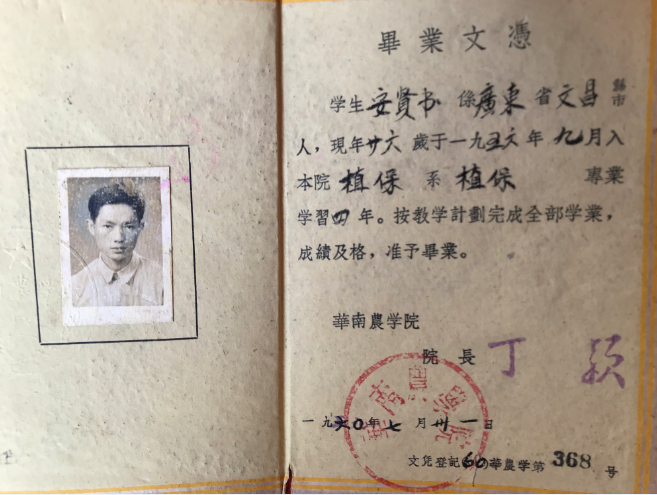 畢業文憑
学生安贤书係廣東省文昌縣市
人，現年廿六歲于一九五六年九月入
本院植保系植保專業
学習四年。按教学計劃完成全部学業，
成績及格，准予畢業。
華南農学院
院長丁颖
一九六〇年七月卅一日
文凭登記(60)華農学第368号